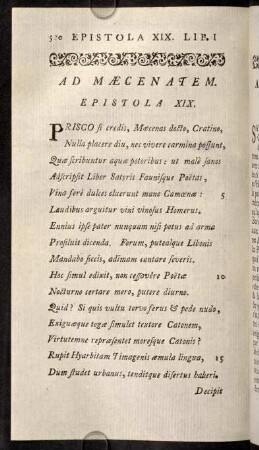 520 EPISTOLA XIX. LIB. I
AD MÆCENATEM.
EPISTOLA XIX.
PRISCO ſi credis, Mæcenas docto, Cratino,
Nulla placere diu, nec vivere carmina poſſunt,
Quæ ſcribuntur aquæ potoribus: ut malè ſanos
Adſcripſit Liber Satyris Fauniſque Poëtas,
Vina ferè dulces oluerunt mane Camœnæ: 5
Laudibus arguitur vini vinoſus Homerus.
Ennius ipſe pater nunquam niſi potus ad arma
Proſiluit dicenda. Forum, putealque Libonis
Mandabo ſiccis, adimam cantare ſeveris.
Hoc ſimul edixit, non ceſſavêre Poëtæ 10
Nocturno certare mero, putere diurno.
Quid? Si quis vultu torvo ferus & pede nudo,
Exiguæque togæ ſimulet textore Catonem,
Virtutemne repræſentet moreſque Catonis?
Rupit Hyarbitam Timagenis æmula lingua, 15
Dum ſtudet urbanus, tenditque diſertus haberi.
Decipit